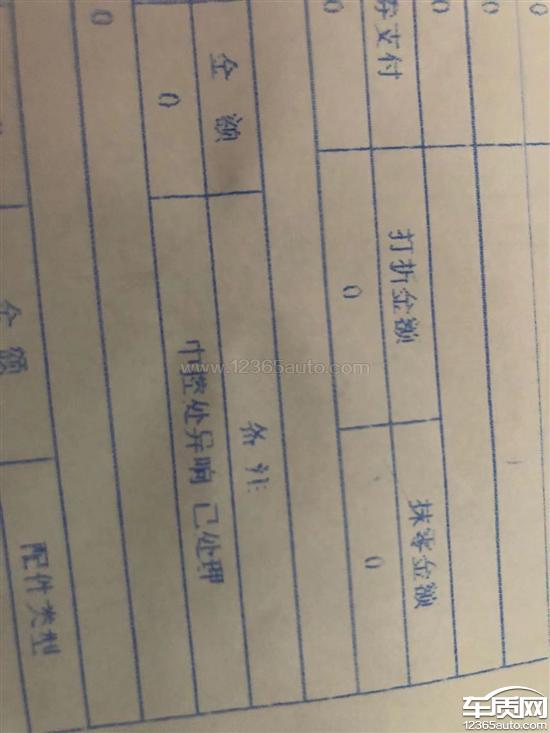 0
0
0
支付 打折金额 抹零金额
0 0 0
金 额 备 注:
0 中控处异响 已处理
0
金 额 配件类型
www.12365auto.com
车质网
12365auto.com